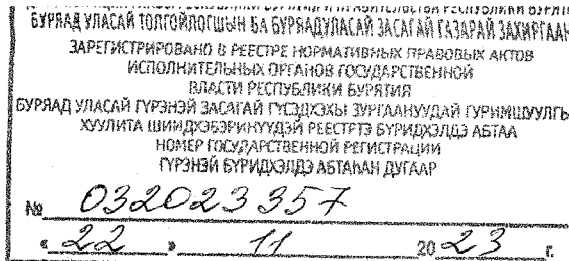 БУРЯАД УЛАСАЙ ТОЛГОЙЛОГШЫН БА БУРЯАДУЛАСАЙ ЗАСАГАЙ ГАЗАРАЙ ЗАХИРГААН
ЗАРЕГИСТРИРОВАНО В РЕЕСТРЕ НОРМАТИВНЫХ ПРАВОВЫХ АКТОВ
ИСПОЛНИТЕЛЬНЫХ ОРГАНОВ ГОСУДАРСТВЕННОЙ
ВЛАСТИ РЕСПУБЛИКИ БУРЯТИЯ
БУРЯАД УЛАСАЙ ГҮРЭНЭЙ ЗАСАГАЙ ГҮЙСЭДХЭХЫ ЗУРГААНУУДАЙ ГУРИМШУУЛГЫ
ХУУЛИТА ШИИДХЭБЭРИНҮҮДЭЙ РЕЕСТРТЭ БҮРИДХЭЛДЭ АБТАА
НОМЕР ГОСУДАРСТВЕННОЙ РЕГИСТРАЦИИ
ГҮРЭНЭЙ БҮРИДХЭЛДЭ АБТАҺАН ДУГААР
№ 032023357
« 22 » 11 20 23 г.